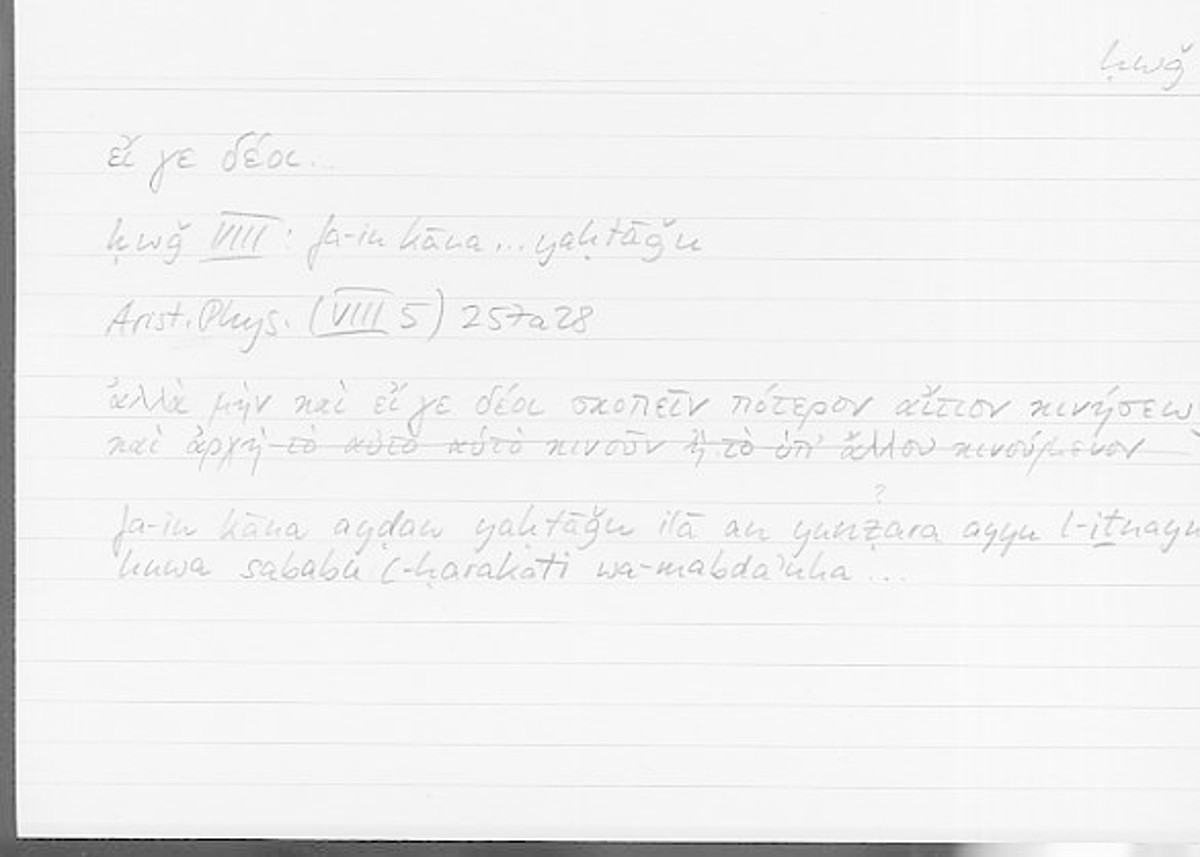 ḥwǧ
εἴ γε δέοι...
ḥwǧ VIII: fa-in kāna... yaḥtāǧu
Arist. Phys. (VIII 5) 257a28
ἀλλὰ μὴν καὶ εἴ γε δέοι σκοπεῖν πότερον αἴτιον κινήσεως
καὶ ἀρχὴ τὸ αὐτὸ αὑτὸ κινοῦν ἢ τὸ ὑπ' ἄλλου κινούμενον
?
fa-in kāna ayḍan yaḥtāǧu ilā an yunẓara ayyu l-iṯnayni
huwa sababu l-ḥarakati wa-mabda'uha...